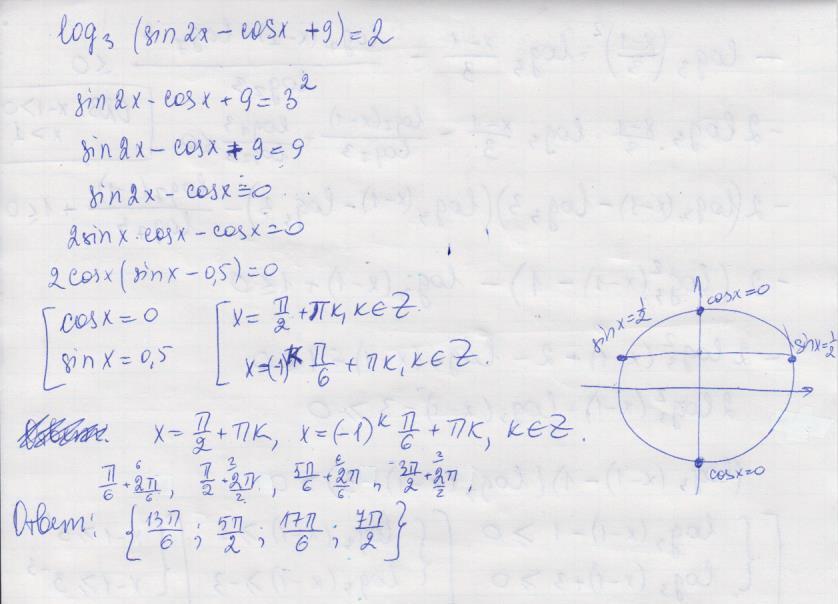 log₃ (sin2x − cosx + 9) = 2
sin2x − cosx + 9 = 3²
sin2x − cosx + 9 = 9
sin2x − cosx = 0
2sinx·cosx − cosx = 0
2cosx(sinx − 0,5) = 0
[cosx = 0 [x = π/2 + πk, k∈Z.
[sinx = 0,5 [x = (−1)^k π/6 + πk, k∈Z.
cosx=0
sinx=1/2
sinx=1/2
cosx=0
x = π/2 + πk, x = (−1)^k π/6 + πk, k∈Z.
π/6 + 2π^6/6, π/2 + 2π^2/2, 5π/6 + 2π^6/6, 3π/2 + 2π^2/2,
Ответ: {13π/6; 5π/2; 17π/6; 7π/2}